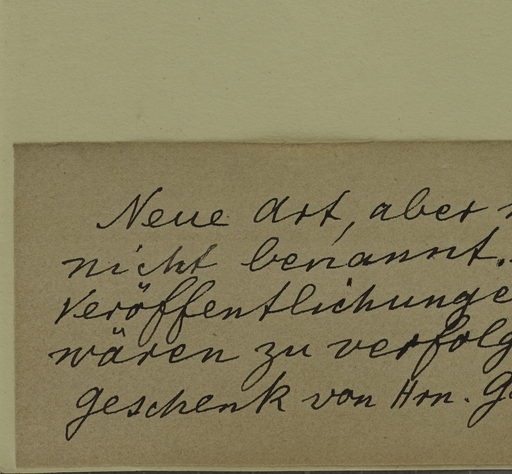 Neue Art, aber
nicht benannt.
Veröffentlichunge
wären zu verfolg
geschenk von Hrn. G